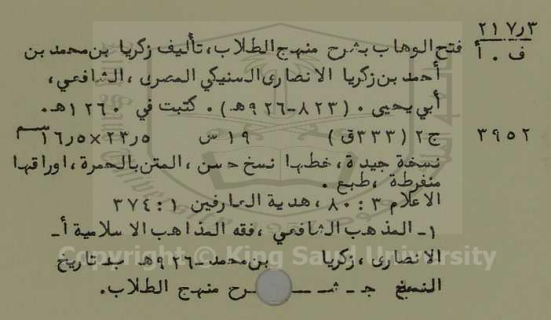 ٢١٧٫٣
ف ٠ أ فتح الوهاب بشرح منهج الطلاب، تأليف زكريا بن محمد بن
أحمد بن زكريا الانصارى السنيكي المصرى، الشافعي،
أبي يحيى ٠ (٨٢٣-٩٢٦هـ) ٠ كتبت في ١٢٦٠هـ٠
٣٩٥٢ ج٢ (٣٣٣ق) ١٩ س ٢٣٫٥×١٦٫٥سم
نسخة جيدة، خطها نسخ حسن، المتن بالحمرة، اوراقها
منفرطة، طبع ٠
الاعلام ٣ : ٨٠، هدية العارفين ١ : ٣٧٤
١ـ المذهب الشافعي، فقه المذاهب الاسلامية أ ـ
الانصارى، زكريا بن محمد ـ ٩٢٦هـ ب ـ تاريخ
النسخ ج ـ شـــرح منهج الطلاب.
Copyright © King Saud University